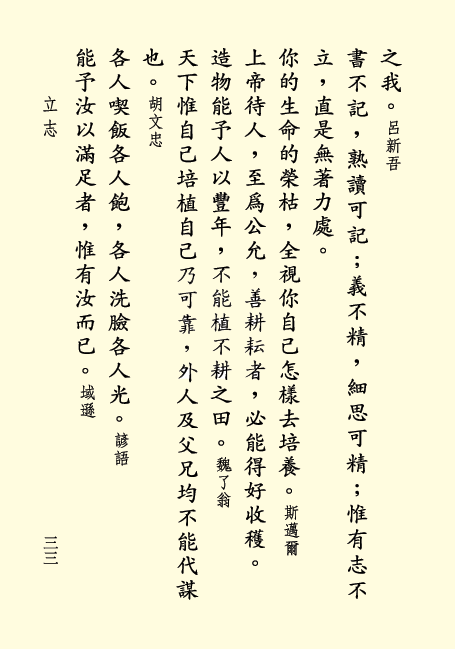 之我。呂新吾
書不記，熟讀可記；義不精，細思可精；惟有志不
立，直是無著力處。
你的生命的榮枯，全視你自己怎樣去培養。斯邁爾
上帝待人，至為公允，善耕耘者，必能得好收穫。
造物能予人以豐年，不能植不耕之田。魏了翁
天下惟自己培植自己乃可靠，外人及父兄均不能代謀
也。胡文忠
各人喫飯各人飽，各人洗臉各人光。諺語
能予汝以滿足者，惟有汝而已。域遜
立志
三三